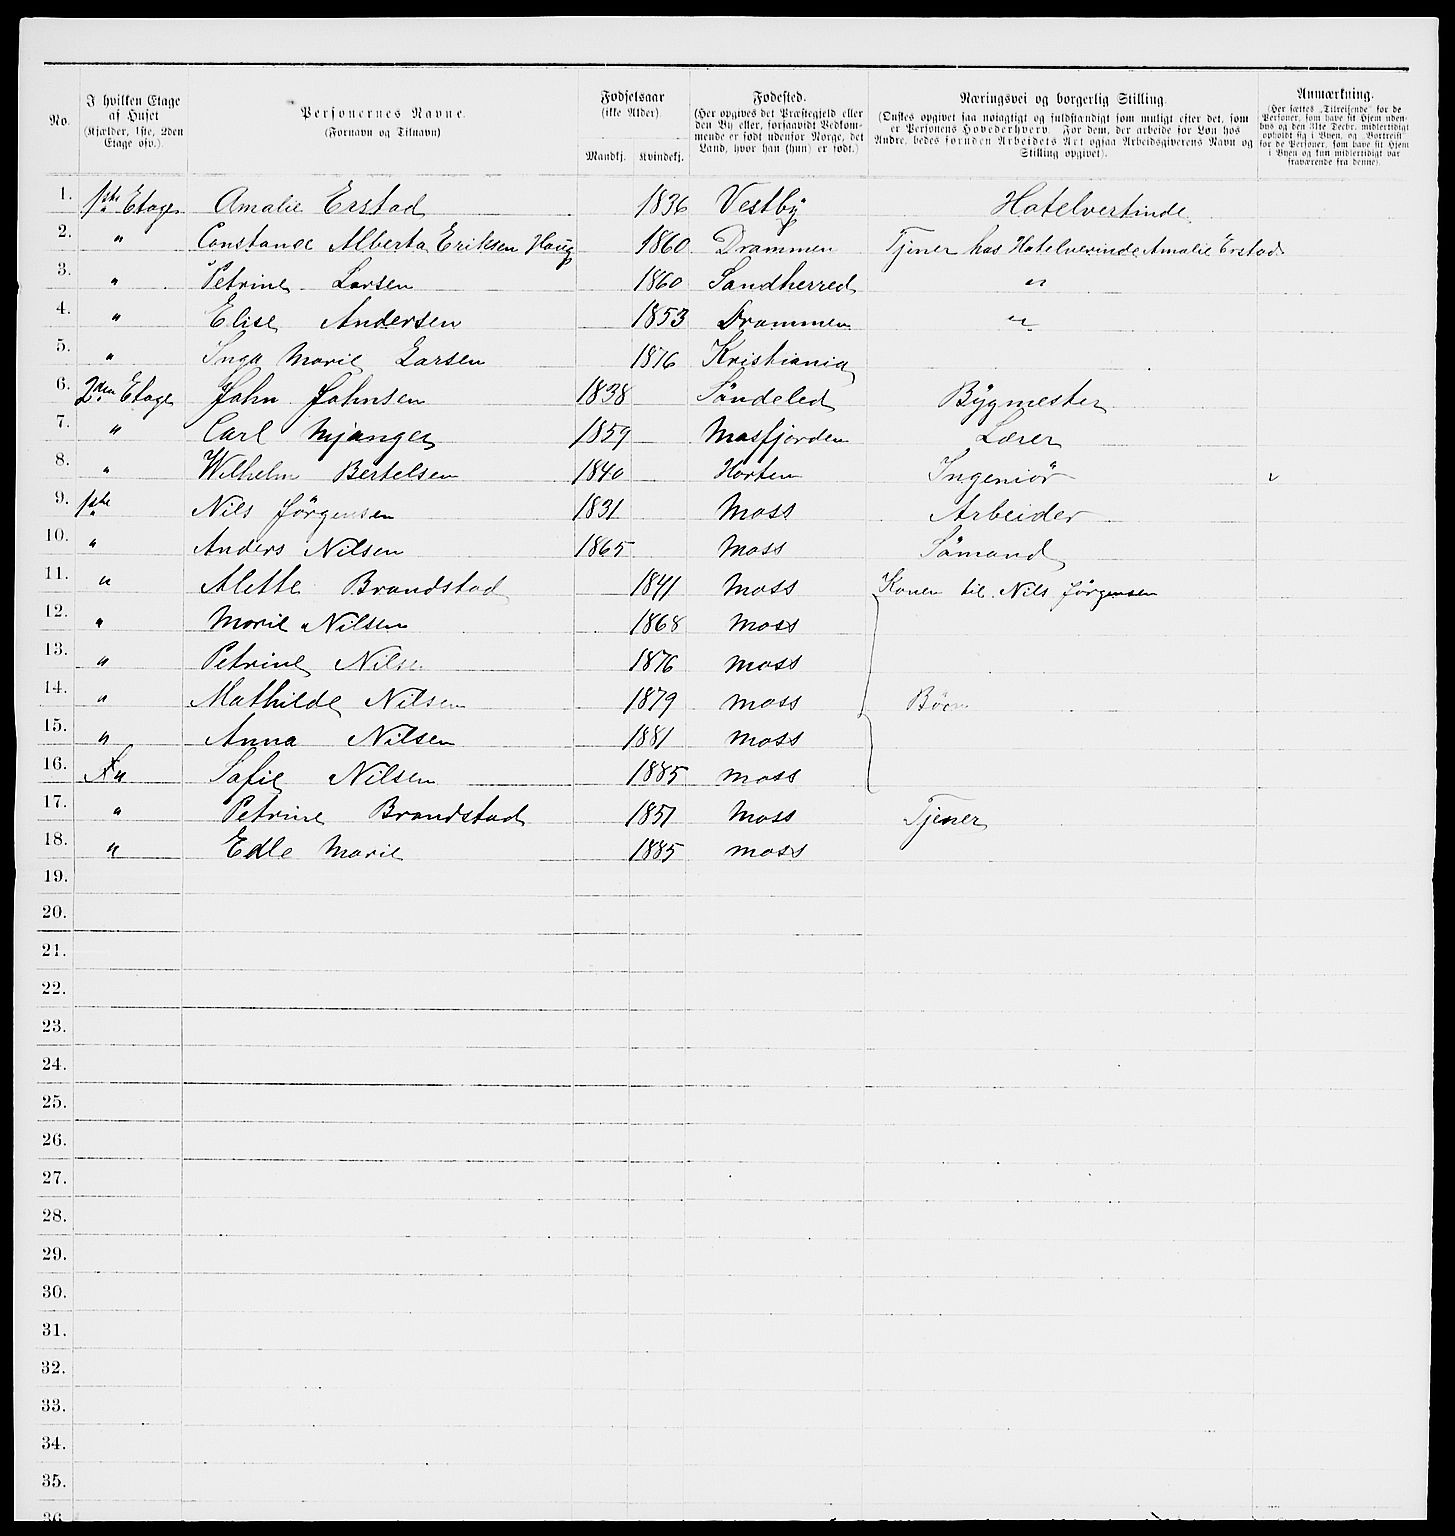 No.
I hvilken Etage af Huset (Kjælder, 1ste, 2den Etage osv.).
Personernes Navne. (Fornavn og Tilnavn)
Fødselsaar (ikke Alder).
Mandkj. Kvindekj.
Fødested. (Her opgives det Præstegjeld eller den By eller, forsaavidt Vedkommende er født udenfor Norge, det Land, hvor han (hun) er født.)
Næringsvei og borgerlig Stilling. (Ønskes opgivet saa nøiagtigt og fuldstændigt som muligt efter det, som er Personens Hovederhverv. For dem, der arbeide for Løn hos Andre, bedes foruden Arbeidets Art ogsaa Arbeidsgiverens Navn og Stilling opgivet).
Anmærkning. (Her sættes „Tilreisende" for de Personer, som have sit Hjem udenbys og den 31te Decbr. midlertidigt opholdt sig i Byen, og „Bortreist" for de Personer, som have sit Hjem i Byen og kun midlertidigt var fraværende fra denne).
1. 1ste Etage Amalie Erstad 1836 Vestby Hotelvertinde
2. " Constance Alberta Eriksen Haug 1860 Drammen Tjener hos Hotelverinde Amalie Erstad
3. " Petrine Larsen 1860 Sandherred "
4. " Elise Andersen 1853 Drammen "
5. " Inga Marie Larsen 1876 Kristiania
6. 2den Etage John Johnsen 1838 Söndeled Bygmester
7. " Carl Mjanger 1859 Masfjorden Lærer
8. " Wilhelm Bertelsen 1840 Horten Ingeniör
9. 1ste Nils Jörgensen 1831 Moss Arbeider
10. " Anders Nilsen 1865 Moss Sömand
11. " Alette Brandstad 1841 Moss Konen til Nils Jörgensen
12. " Marie Nilsen 1868 Moss
13. " Petrine Nilsen 1876 Moss
14. " Mathilde Nilsen 1879 Moss Börn
15. " Anna Nilsen 1881 Moss
16. X " Sofie Nilsen 1885 Moss
17. " Petrine Brandstad 1857 Moss Tjener
18. " Edle Marie 1885 Moss
19.
20.
21.
22.
23.
24.
25.
26.
27.
28.
29.
30.
31.
32.
33.
34.
35.
36.